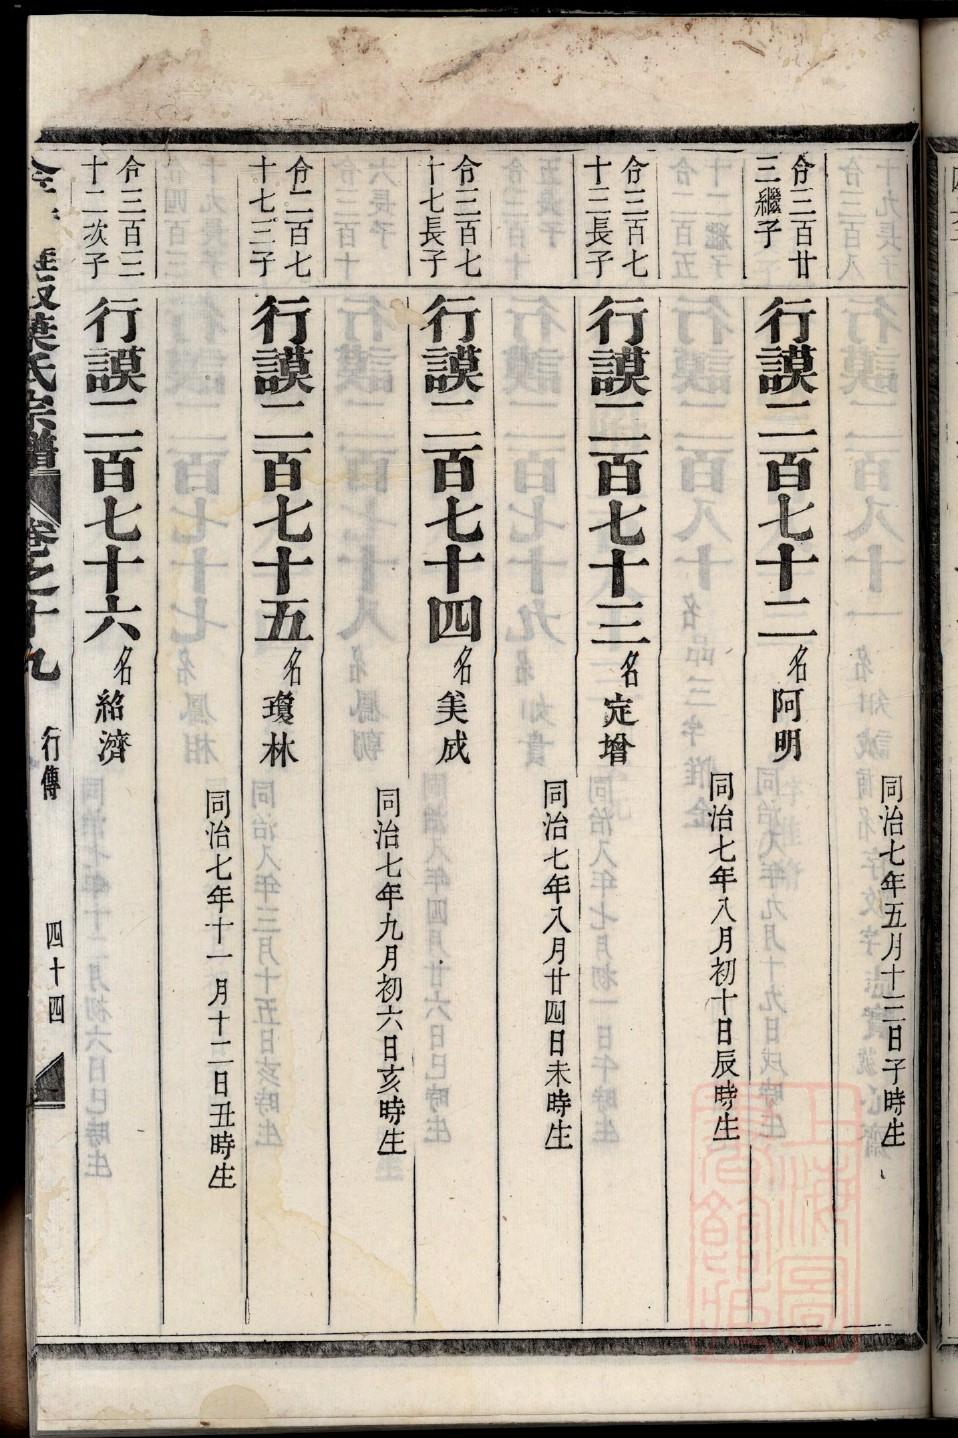 同治七年五月十三日子時生
令三百廿
三繼子
行謨二百七十二 名阿明
同治七年八月初十日辰時生
令三百七
十三長子
行謨二百七十三 名定增
同治七年八月廿四日未時生
令三百七
十七長子
行謨二百七十四 名美成
同治七年九月初六日亥時生
令二百七
十七三子
行謨二百七十五 名瓊林
同治七年十一月十二日丑時生
令三百三
十二次子
行謨二百七十六 名紹濟
葉氏宗譜 卷之十九 行傳 四十四